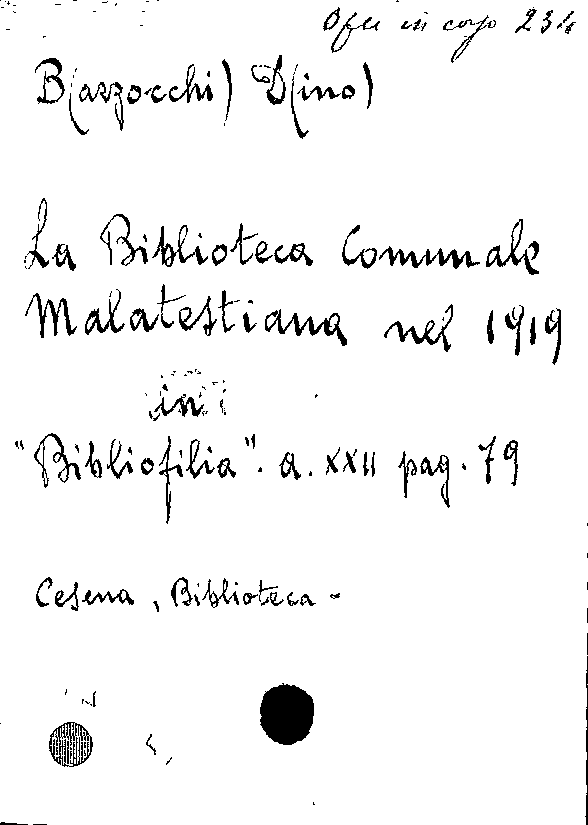 Opere in corso 234
B(azzocchi) D(ino)
La Biblioteca Comunale
Malatestiana nel 1919
in
"Bibliofilia". a. XXII pag. 79
Cesena, Biblioteca -